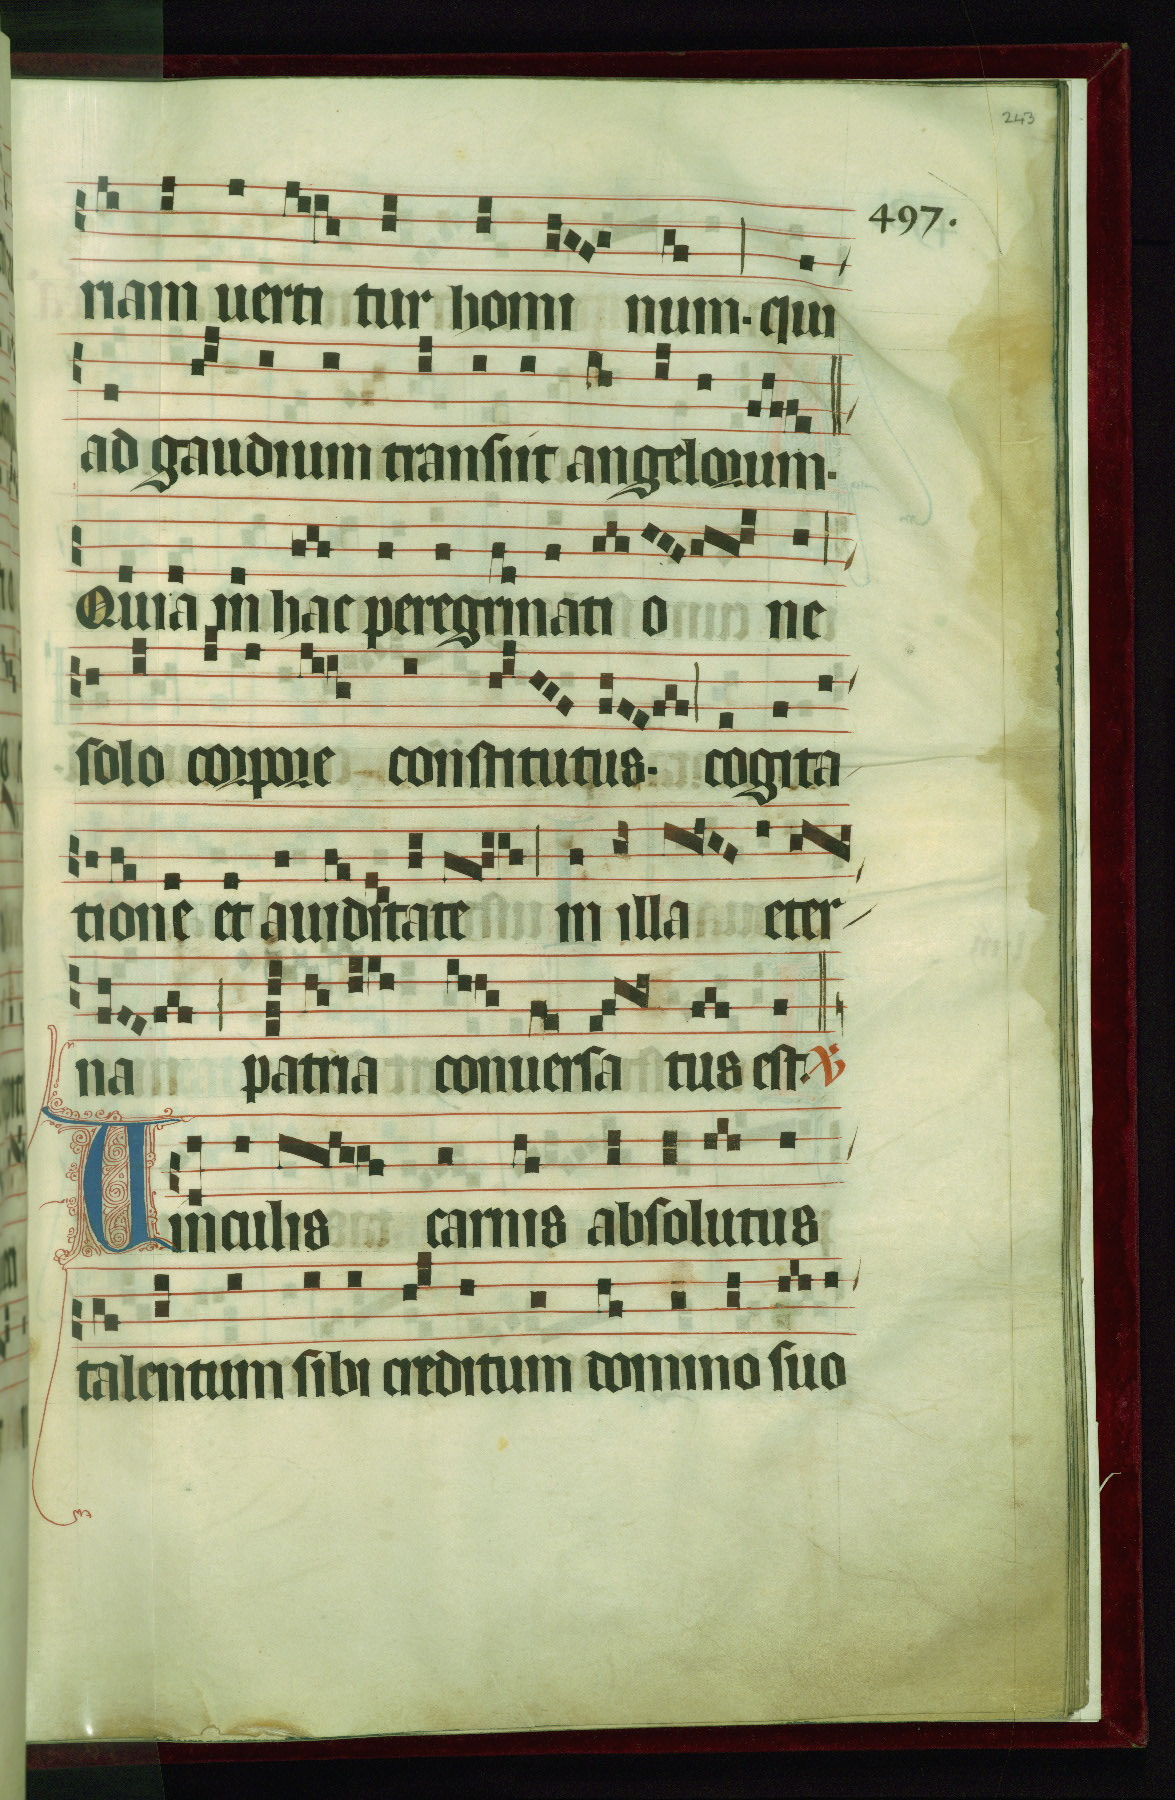 243
497.
riam uerti tur homi num. qui
ad gaudium transiit angelorum.
Quia in hac peregrinati o ne
solo corpore constitutus. cogita
tione et auiditate in illa eter
na patria conuersa tus est. ℣
Uinculis carnis absolutus
talentum sibi creditum domino suo